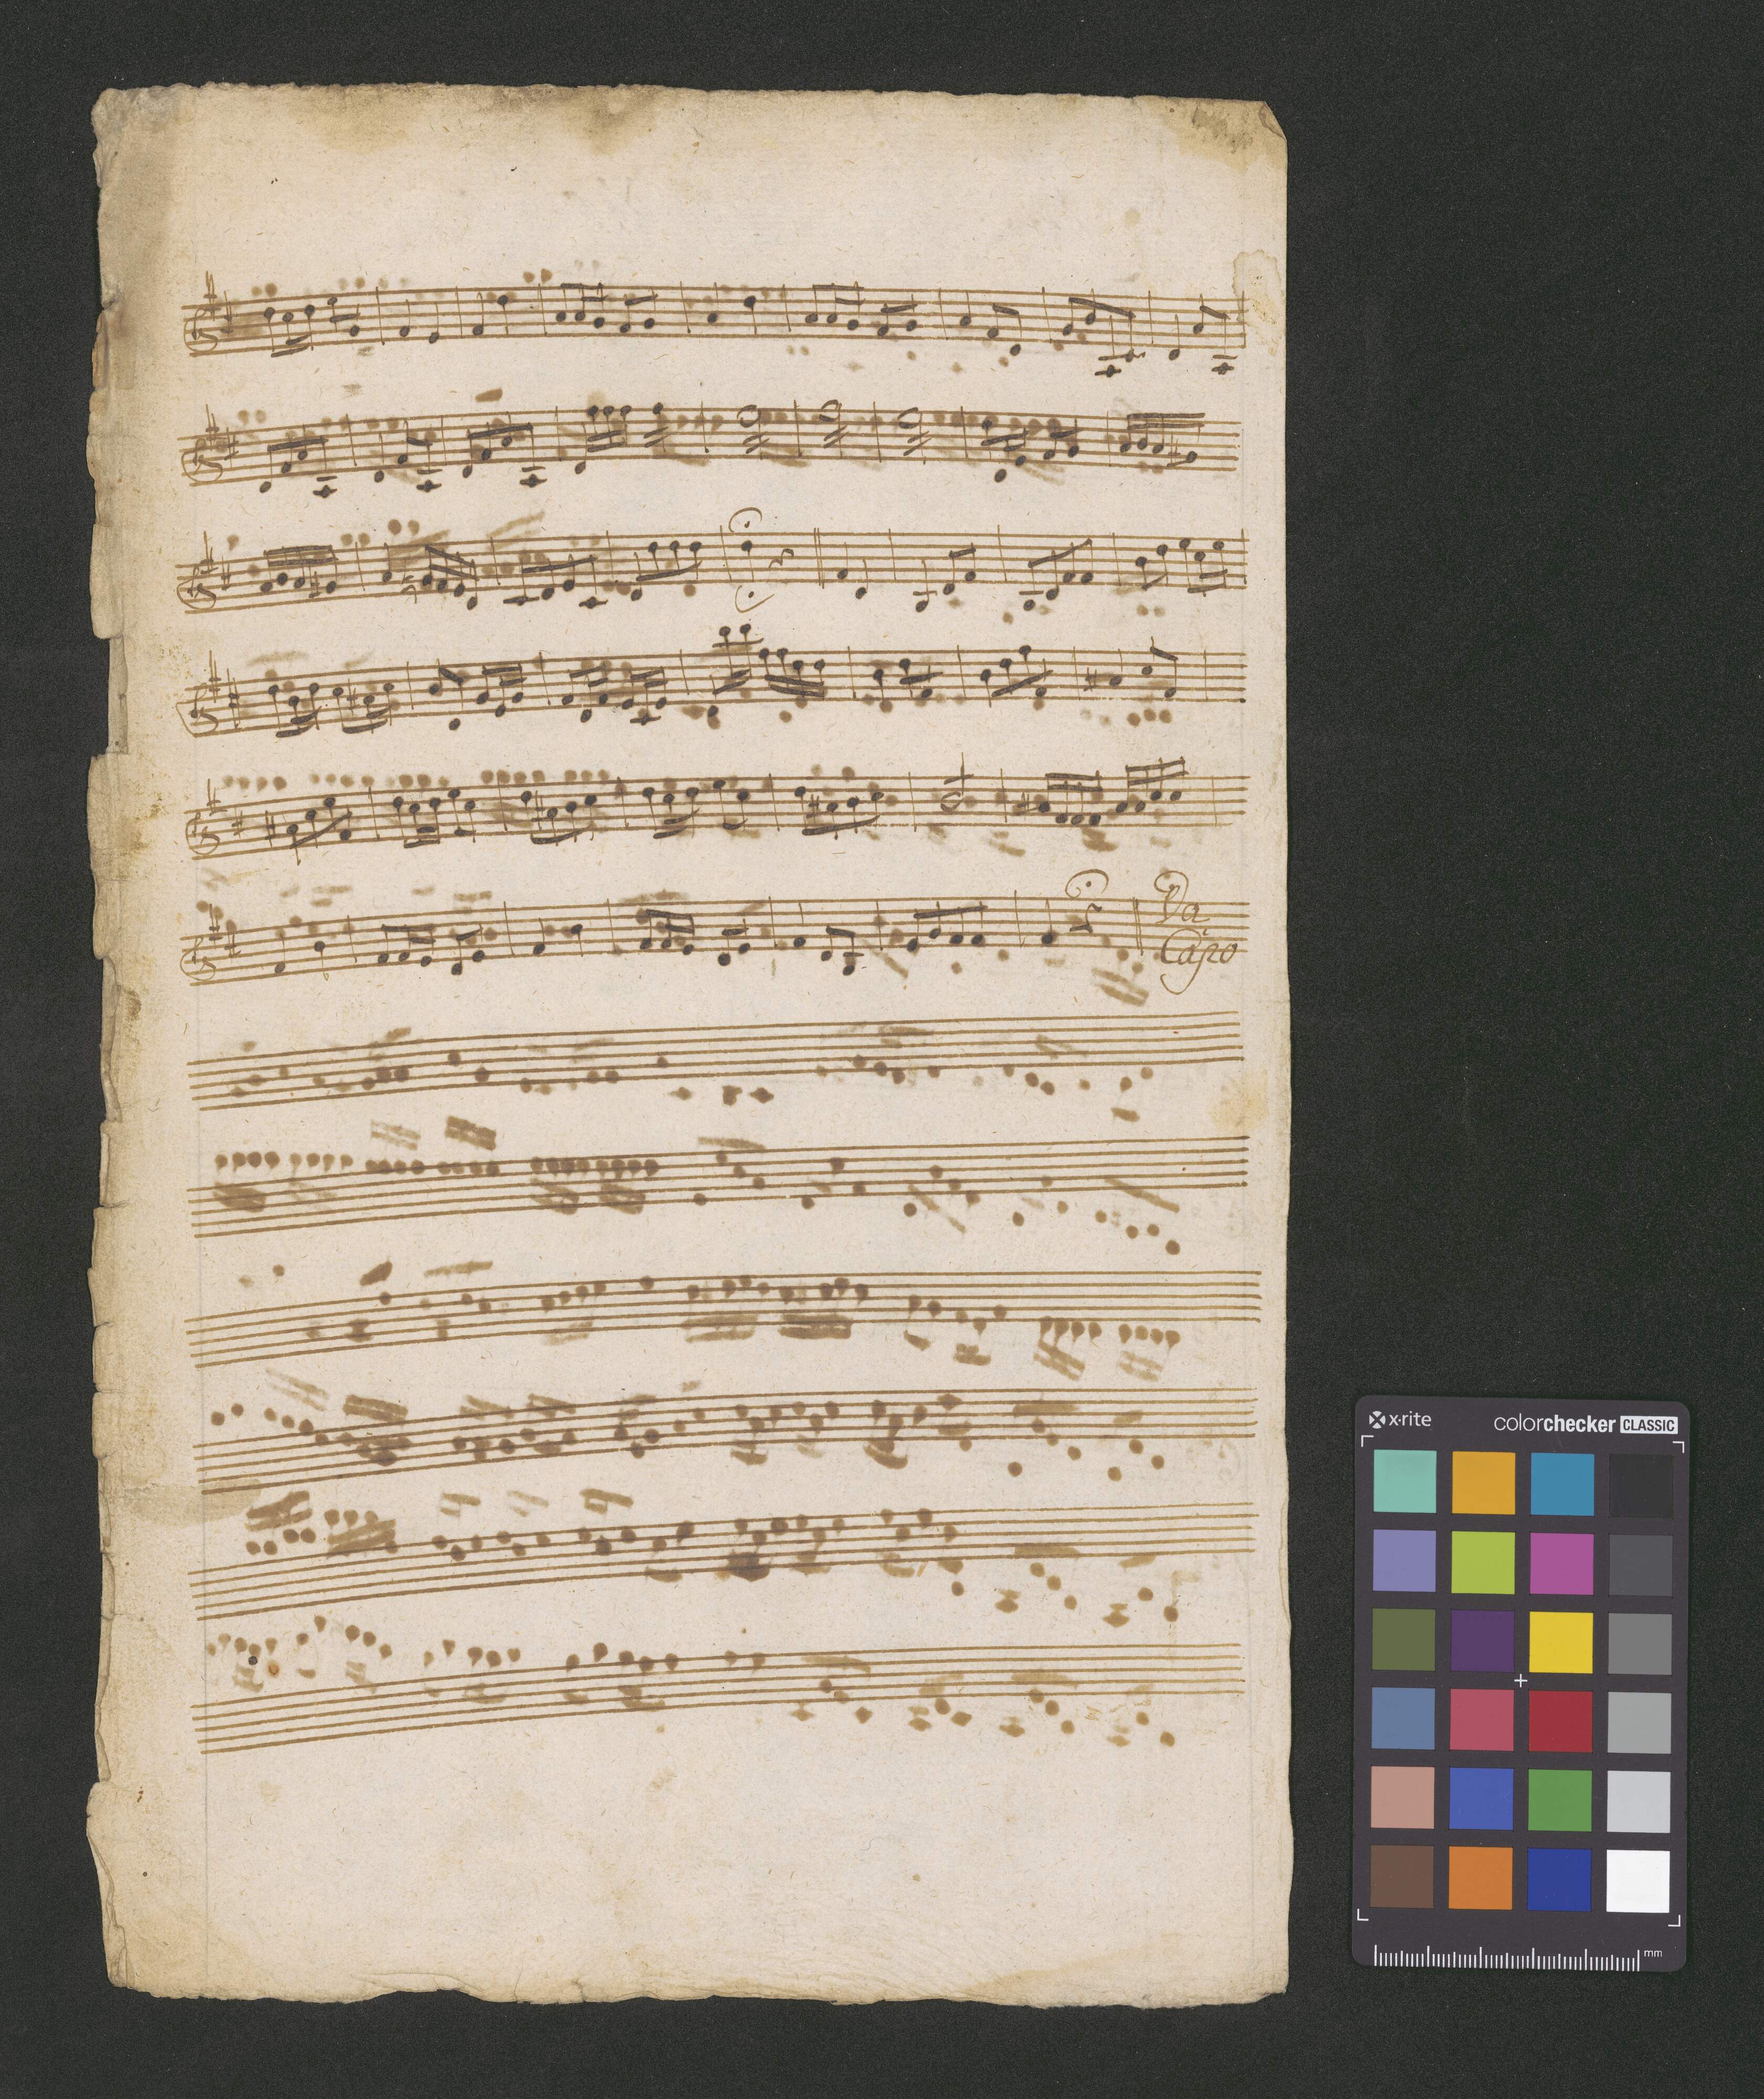 Da
Capo
x-rite
colorchecker CLASSIC
mm